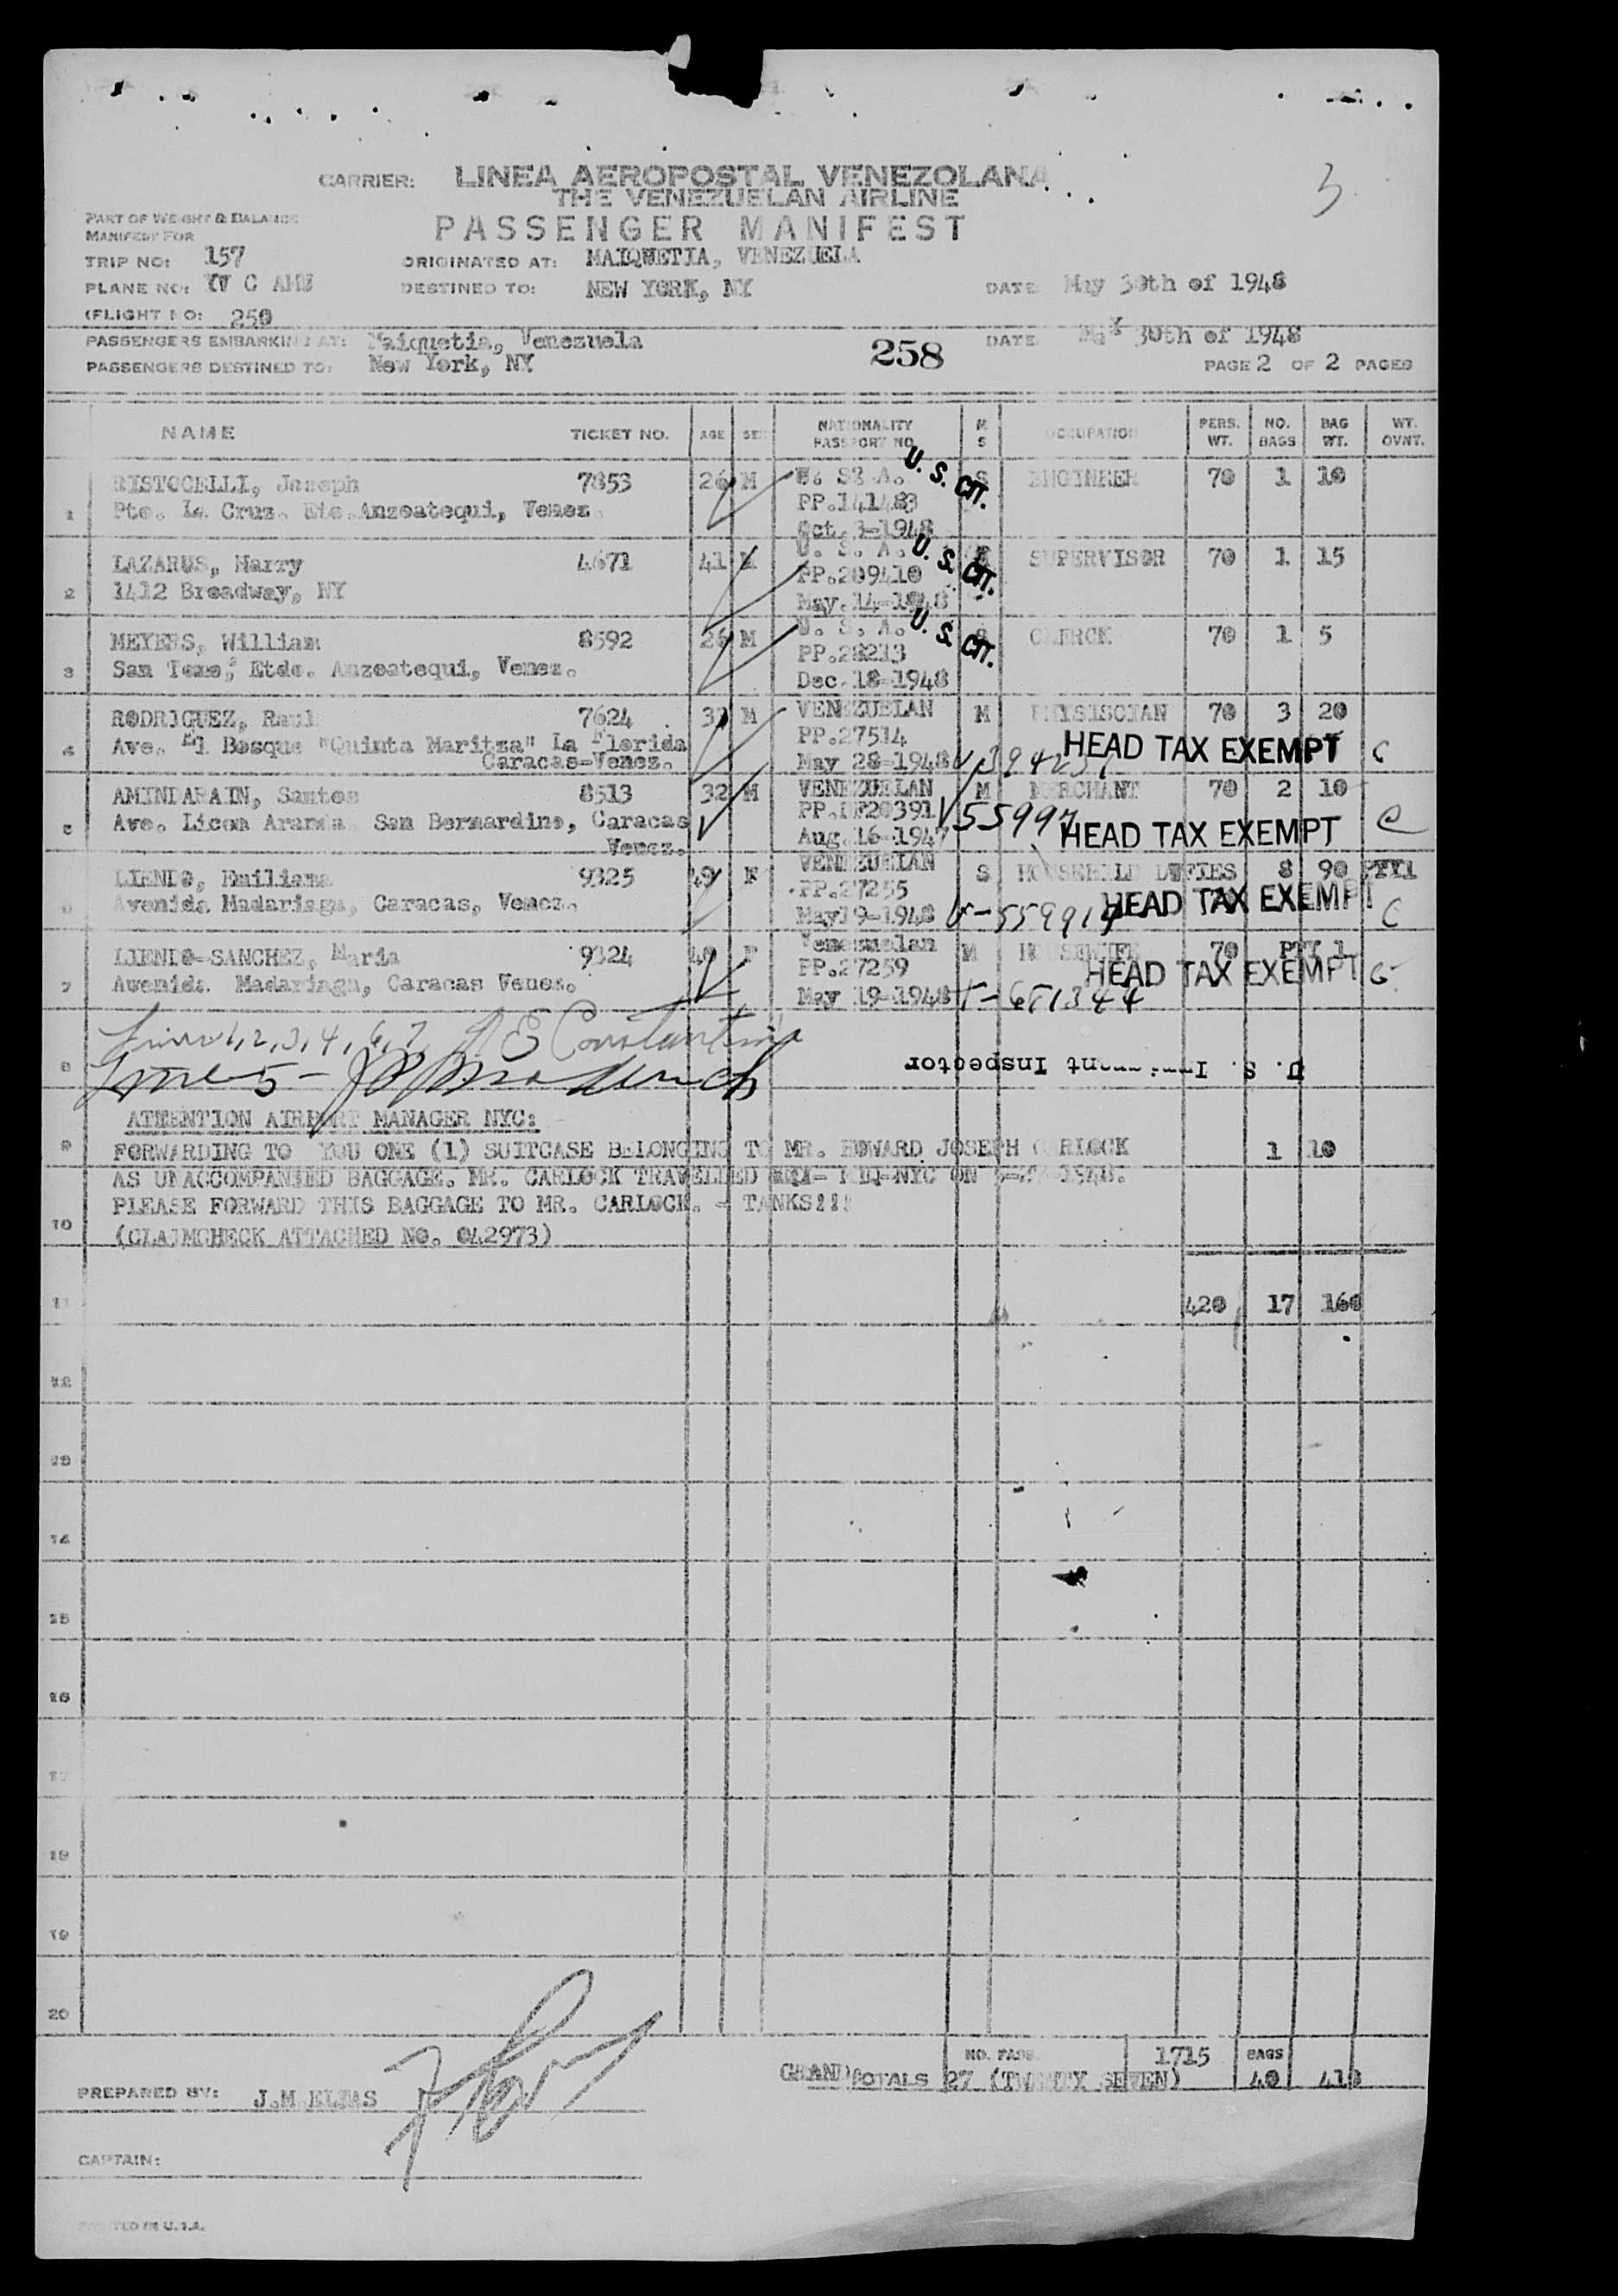 3
CARRIER: LINEA AEROPOSTAL VENEZOLANA
THE VENEZUELAN AIRLINE
PART OF WEIGHT & BALANCE
MANIFEST FOR
PASSENGER MANIFEST
TRIP NO: 157 ORIGINATED AT: MAIQUETIA, VENEZUELA
PLANE NO: YV C DESTINED TO: NEW YORK, NY DATE May 30th of 1948
(FLIGHT NO: 250
PASSENGERS EMBARKING AT: Maiquetia, Venezuela 258 DATE May 30th of 1948
PASSENGERS DESTINED TO: New York, NY PAGE 2 OF 2 PAGES
NAME TICKET NO. AGE SEX NATIONALITY PASSPORT NO. M S OCCUPATION PERS. WT. NO. BAGS BAG WT. WT. OVNT.
1 RISTOCELLI, Joseph 7853 26 M U. S. A. U. S. CIT. S ENGINEER 70 1 10
Pto. La Cruz. Etc. Anzoatequi, Venez. PP.141483
Oct. 3-1948
2 LAZARUS, Harry 4671 41 M U. S. A. U. S. CIT. SUPERVISOR 70 1 15
1412 Broadway, NY PP.209410
May.14-1948
3 MEYERS, William 8592 26 M U. S. A. U. S. CIT. S CLERCK 70 1 5
San Tome; Etdo. Anzoatequi, Venez. PP.28213
Dec.18-1948
4 RODRIGUEZ, Raul 7624 M VENEZUELAN M PHYSISCIAN 70 3 20
Ave. El Bosque "Quinta Maritza" La Florida PP.27514
Caracas-Venez. May 28-1948 HEAD TAX EXEMPT C
5 AMINDARAIN, Santos 8513 32 M VENEZUELAN M MERCHANT 70 2 10
Ave. Licon Aranda San Bernardino, Caracas PP.DF20391
Venez. Aug.16-1947 HEAD TAX EXEMPT C
6 LIENDO, Emiliana 9325 49 F VENEZUELAN S HOUSEHOLD DUTIES 8 90 PTY1
Avenida Madariaga, Caracas, Venez. PP.27255
May19-1948 HEAD TAX EXEMPT C
7 LIENDO-SANCHEZ, Maria 9324 40 F Venezuelan M HOUSEWIFE 70 PTY 1
Avenida Madariaga, Caracas Venez. PP.27259
May 19-1948 HEAD TAX EXEMPT
Lines 1, 2, 3, 4, 6, 7 E Constantine
8 Line 5 - U. S. Immigrant Inspector
ATTENTION AIRPORT MANAGER NYC:
9 FORWARDING TO YOU ONE (1) SUITCASE BELONGING TO MR. EDWARD JOSEPH CARLOCK 1 10
AS UNACCOMPANIED BAGGAGE. MR. CARLOCK TRAVELLED NYC ON 1948.
PLEASE FORWARD THIS BAGGAGE TO MR. CARLOCK. - TANKS!!!
10 (CLAIMCHECK ATTACHED NO. 042973)
11 420 17 160
12
13
14
15
16
17
18
19
20
GRAND TOTALS NO. PASS. 27 (TWENTY SEVEN) 1715 BAGS 40 418
PREPARED BY: J.M ELIAS
CAPTAIN:
PRINTED IN U.S.A.